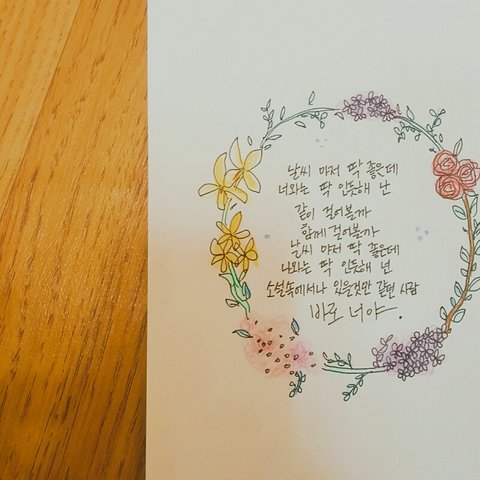 날씨 마저 딱 좋은데
너와는 딱 인듯해 난
같이 걸어볼까
함께 걸어볼까
날씨 마저 딱 좋은데
나와는 딱 인듯해 넌
소설속에서나 있을것만 같던 사람
바로 너야.